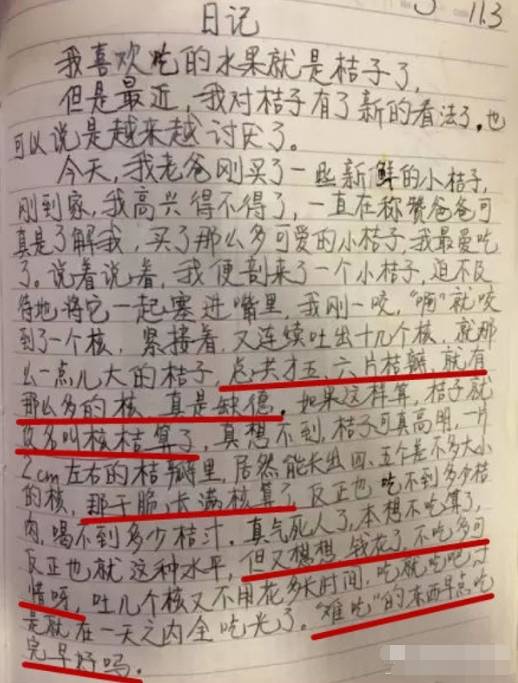 11.3
日记
我喜欢吃的水果就是桔子了,
但是最近,我对桔子有了新的看法了。也
可以说是越来越讨厌了。
今天,我老爸刚买了一些新鲜的小桔子,
刚到家,我高兴得不得了,一直在称赞爸爸可
真是了解我,买了那么多可爱的小桔子,我最爱吃
了。说着说着,我便剖来了一个小桔子,迫不及
待地将它一起塞进嘴里,我刚一咬,“啊”就咬
到了一个核,紧接着,又连续吐出十几个核,就那
么一点儿大的桔子,总共才五、六片桔瓣,就有
那么多的核,真是缺德。如果这样算,桔子就
改名叫核桔算了,真想不到,桔子可真高明,一片
2cm左右的桔瓣里,居然能长出四、五个差不多大小
的核,那干脆长满核算了,反正也吃不到多少桔
肉,喝不到多少桔汁。真气死人了,本想不吃算了,
反正也就这种水平,但又想想,钱花了,不吃多可
惜呀,吐几个核又不用花多长时间,吃就吃吧,于
是就在一天之内全吃光了。“难吃”的东西早点吃
完早好吗。